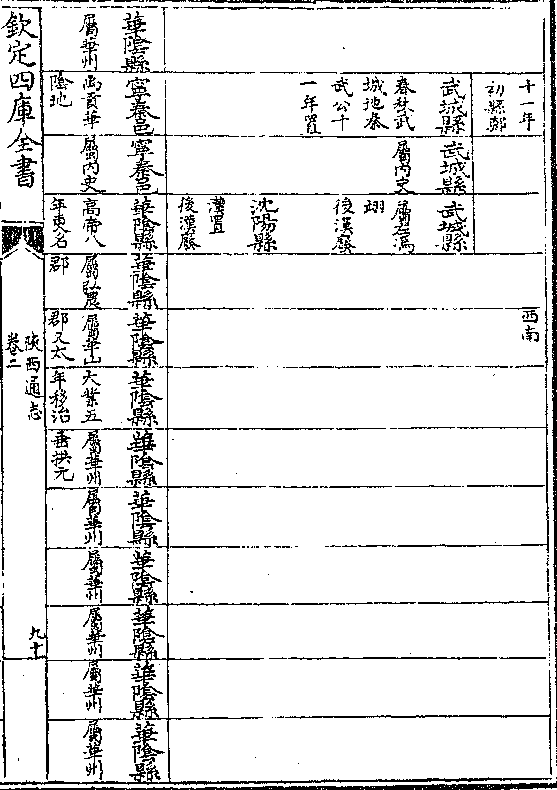 十一年
初縣鄭
西南
武城縣
春秋武
城地秦
武公十
一年置
武城縣
屬內史
武城縣
屬左馮
翊
後漢廢
沈陽縣
漢置
後漢廢
華陰縣
屬華州
寧秦邑
禹貢華
陰地
寧秦邑
屬內史
華陰縣
高帝八
年更名
華陰縣
屬弘農
郡
華陰縣
屬華山
郡又太
華陰縣
大業五
年移治
華陰縣
屬華州
垂拱元
華陰縣
屬華州
華陰縣
屬華州
華陰縣
屬華州
華陰縣
屬華州
華陰縣
屬華州
欽定四庫全書
陝西通志
卷二
九十